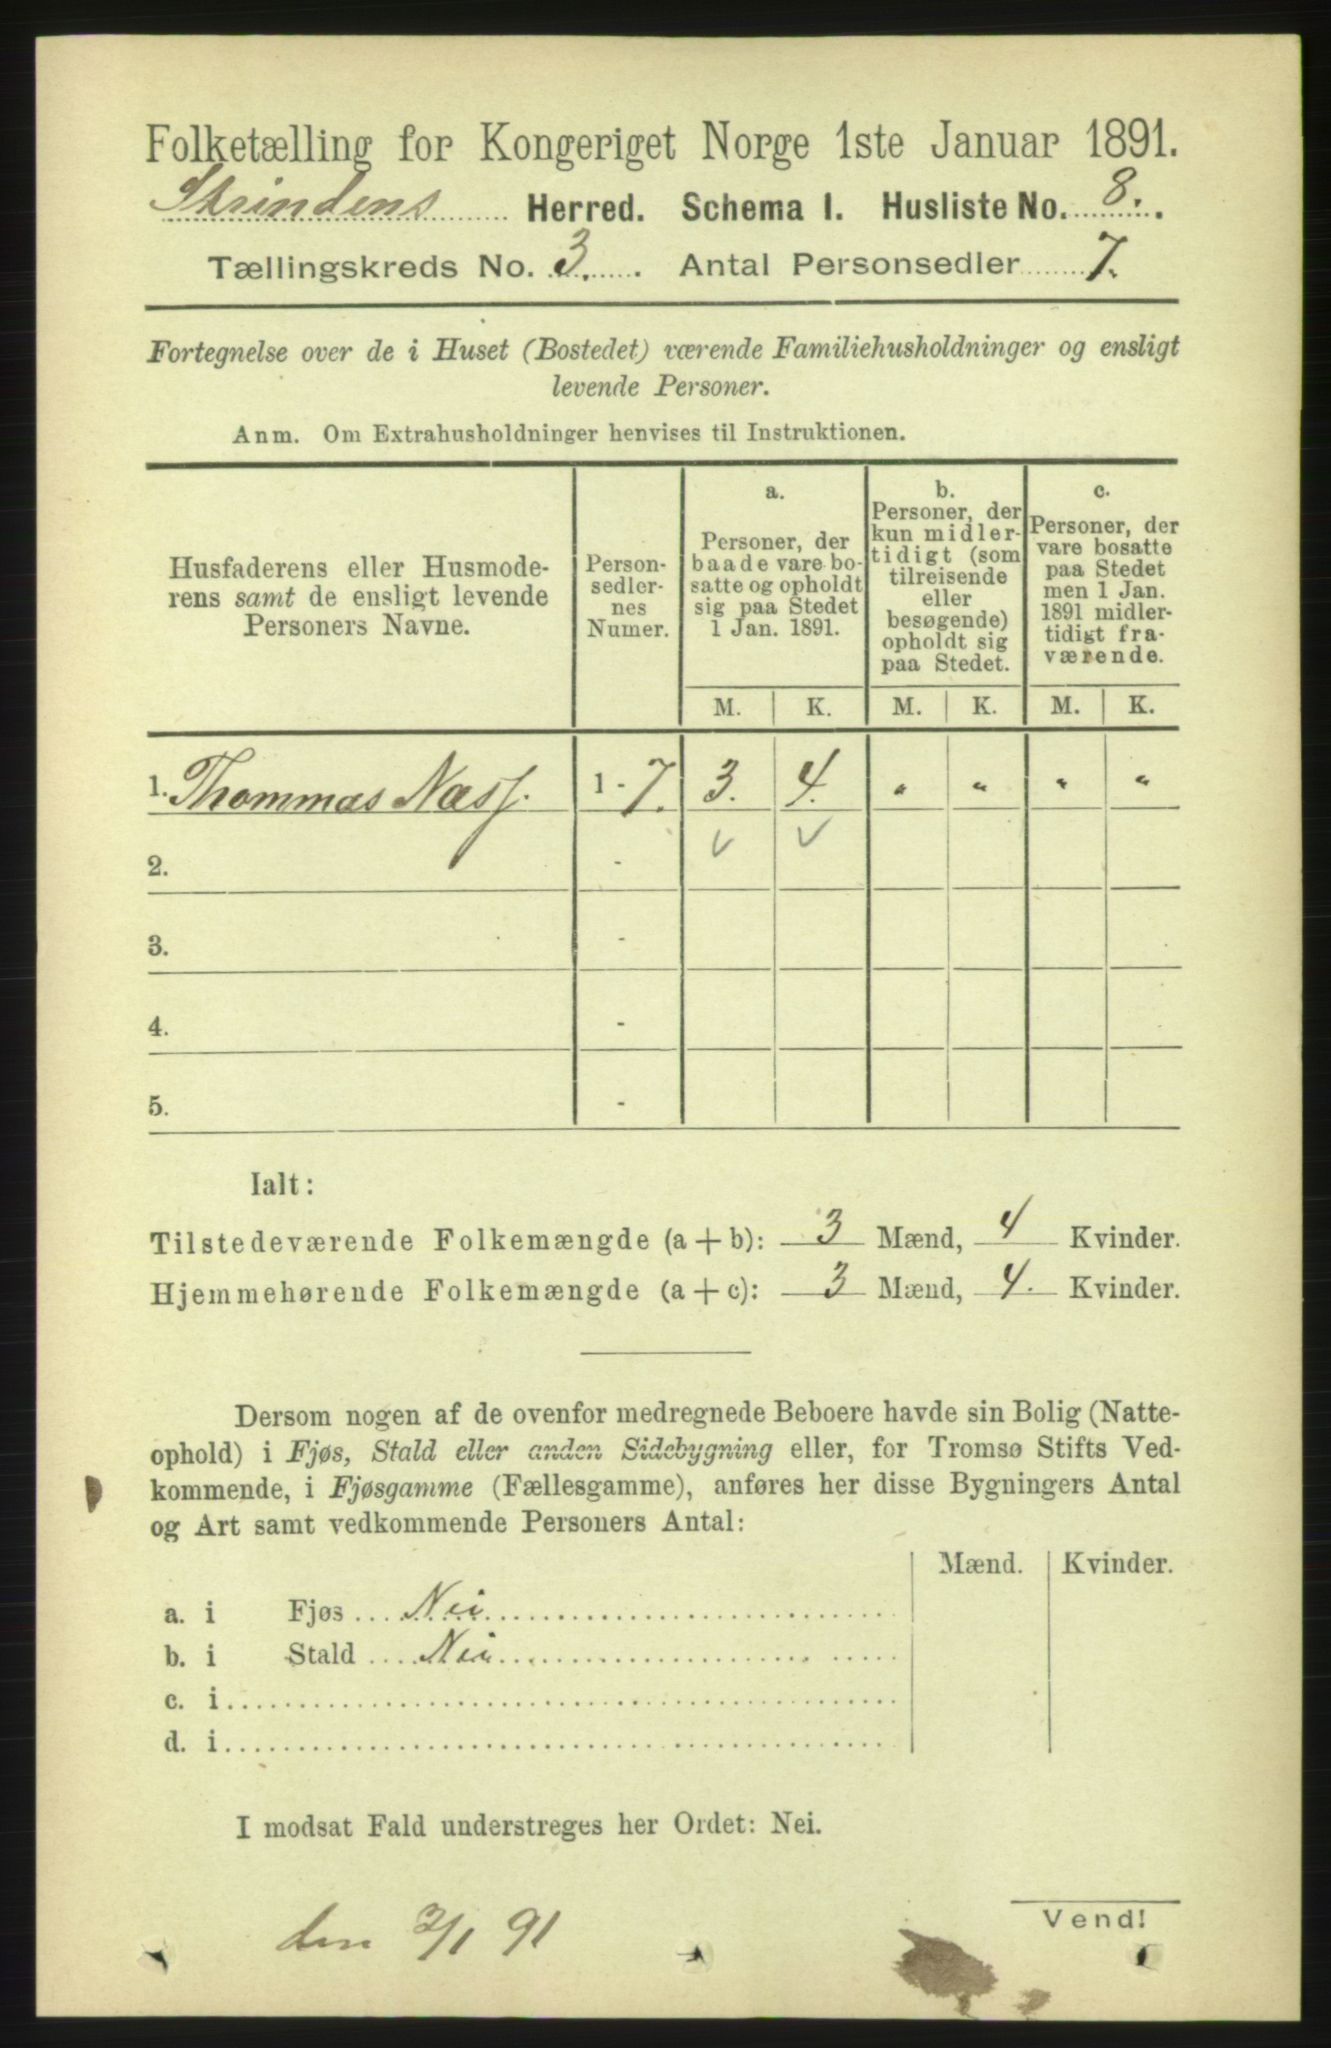 Folketælling for Kongeriget Norge 1ste Januar 1891.
Strindens Herred. Schema I. Husliste No. 8.
Tællingskreds No. 3. Antal Personsedler 7.
Fortegnelse over de i Huset (Bostedet) værende Familiehusholdninger og ensligt
levende Personer.
Anm. Om Extrahusholdninger henvises til Instruktionen.
Husfaderens eller Husmode-
rens samt de ensligt levende
Personers Navne.
Person-
sedler-
nes
Numer.
a.
Personer, der
baade vare bo-
satte og opholdt
sig paa Stedet
1 Jan. 1891.
b.
Personer, der
kun midler-
tidigt (som
tilreisende
eller
besøgende)
opholdt sig
paa Stedet.
c.
Personer, der
vare bosatte
paa Stedet
men 1 Jan.
1891 midler-
tidigt fra-
værende.
M. K. M. K. M. K.
1. Thommas Næss. 1 - 7. 3. 4. " " " "
2. - ✓ ✓
3. -
4. -
5. -
Ialt:
Tilstedeværende Folkemængde (a + b): 3 Mænd, 4 Kvinder.
Hjemmehørende Folkemængde (a + c): 3 Mænd, 4. Kvinder.
Dersom nogen af de ovenfor medregnede Beboere havde sin Bolig (Natte-
ophold) i Fjøs, Stald eller anden Sidebygning eller, for Tromsø Stifts Ved-
kommende, i Fjøsgamme (Fællesgamme), anføres her disse Bygningers Antal
og Art samt vedkommende Personers Antal:
Mænd. Kvinder.
a. i Fjøs Nei
b. i Stald Nei
c. i
d. i
I modsat Fald understreges her Ordet: Nei.
Vend!
den 3/1 91